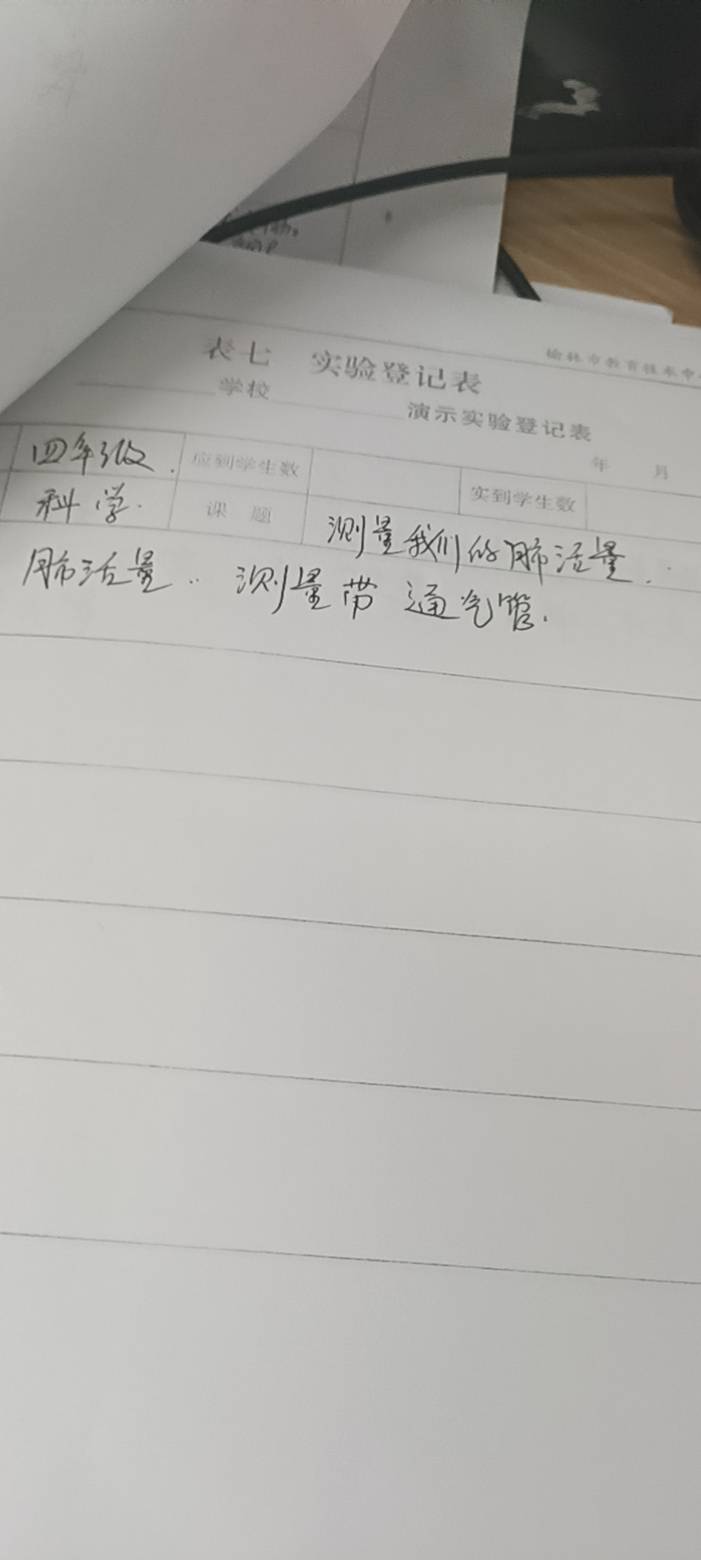 榆林市教育技术中
表七 实验登记表
学校 演示实验登记表
年 月
四年级. 应到学生数 实到学生数
科学. 课题 测量我们的肺活量.
肺活量.. 测量带 通气管.